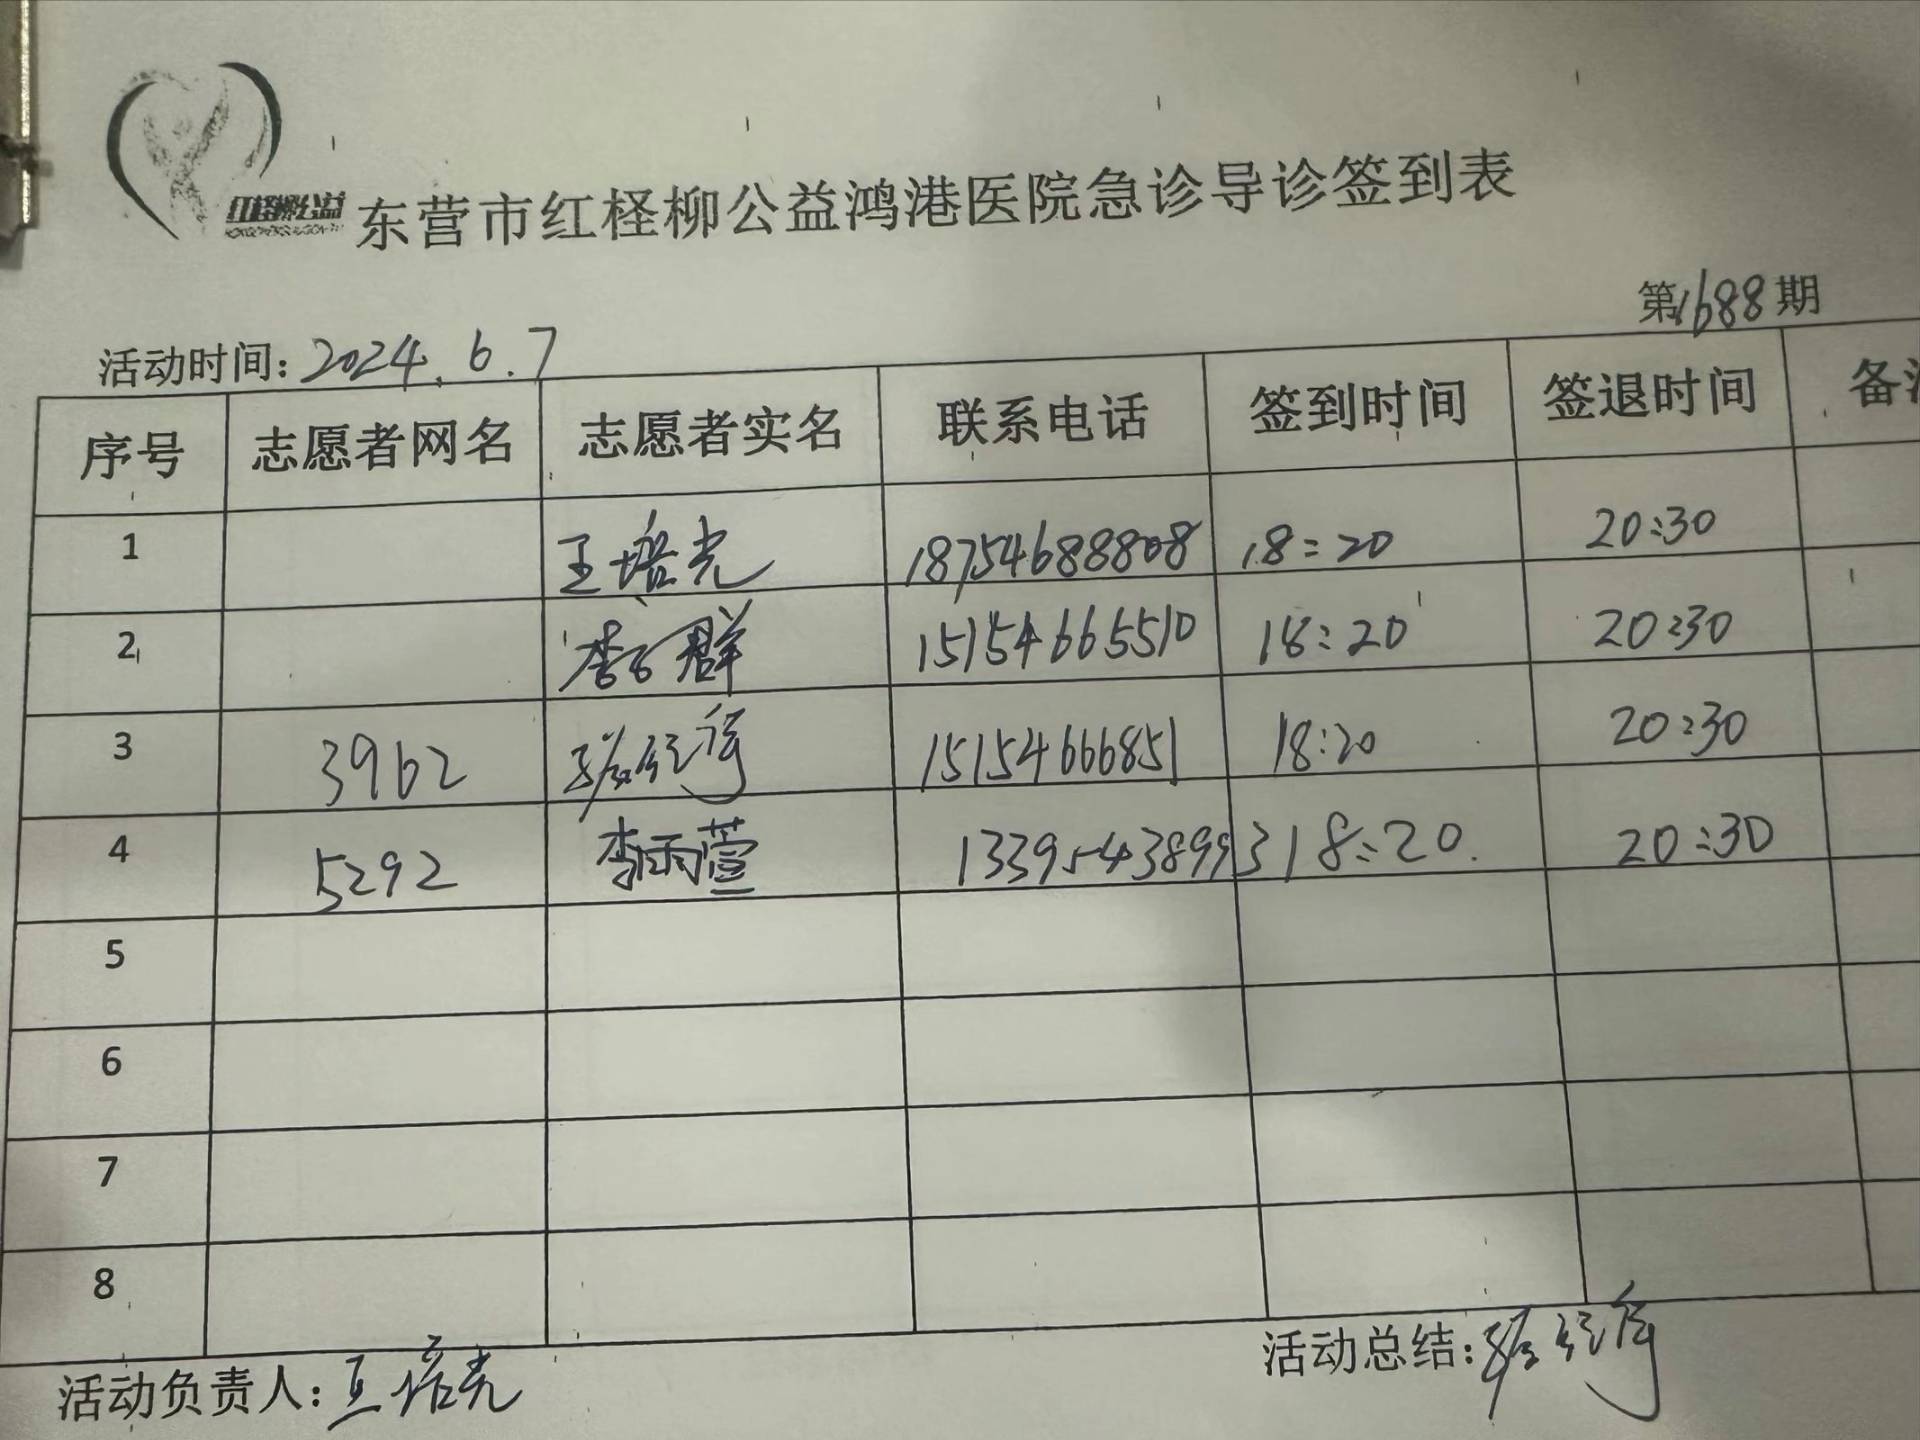 红柽柳公益
东营市红柽柳公益鸿港医院急诊导诊签到表
第1688期
活动时间：2024.6.7
序号 志愿者网名 志愿者实名 联系电话 签到时间 签退时间 备注
1 王培光 18754688808 18:20 20:30
2 李 群 15154665510 18:20 20:30
3 3962 15154666851 18:20 20:30
4 5292 李雨萱 13395438993 18:20. 20:30
5
6
7
8
活动负责人：王培光
活动总结：